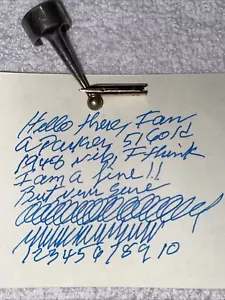 Hello there, I am
a Parker 51 Gold
nib, I think
I am a fine!!
But
12345678910